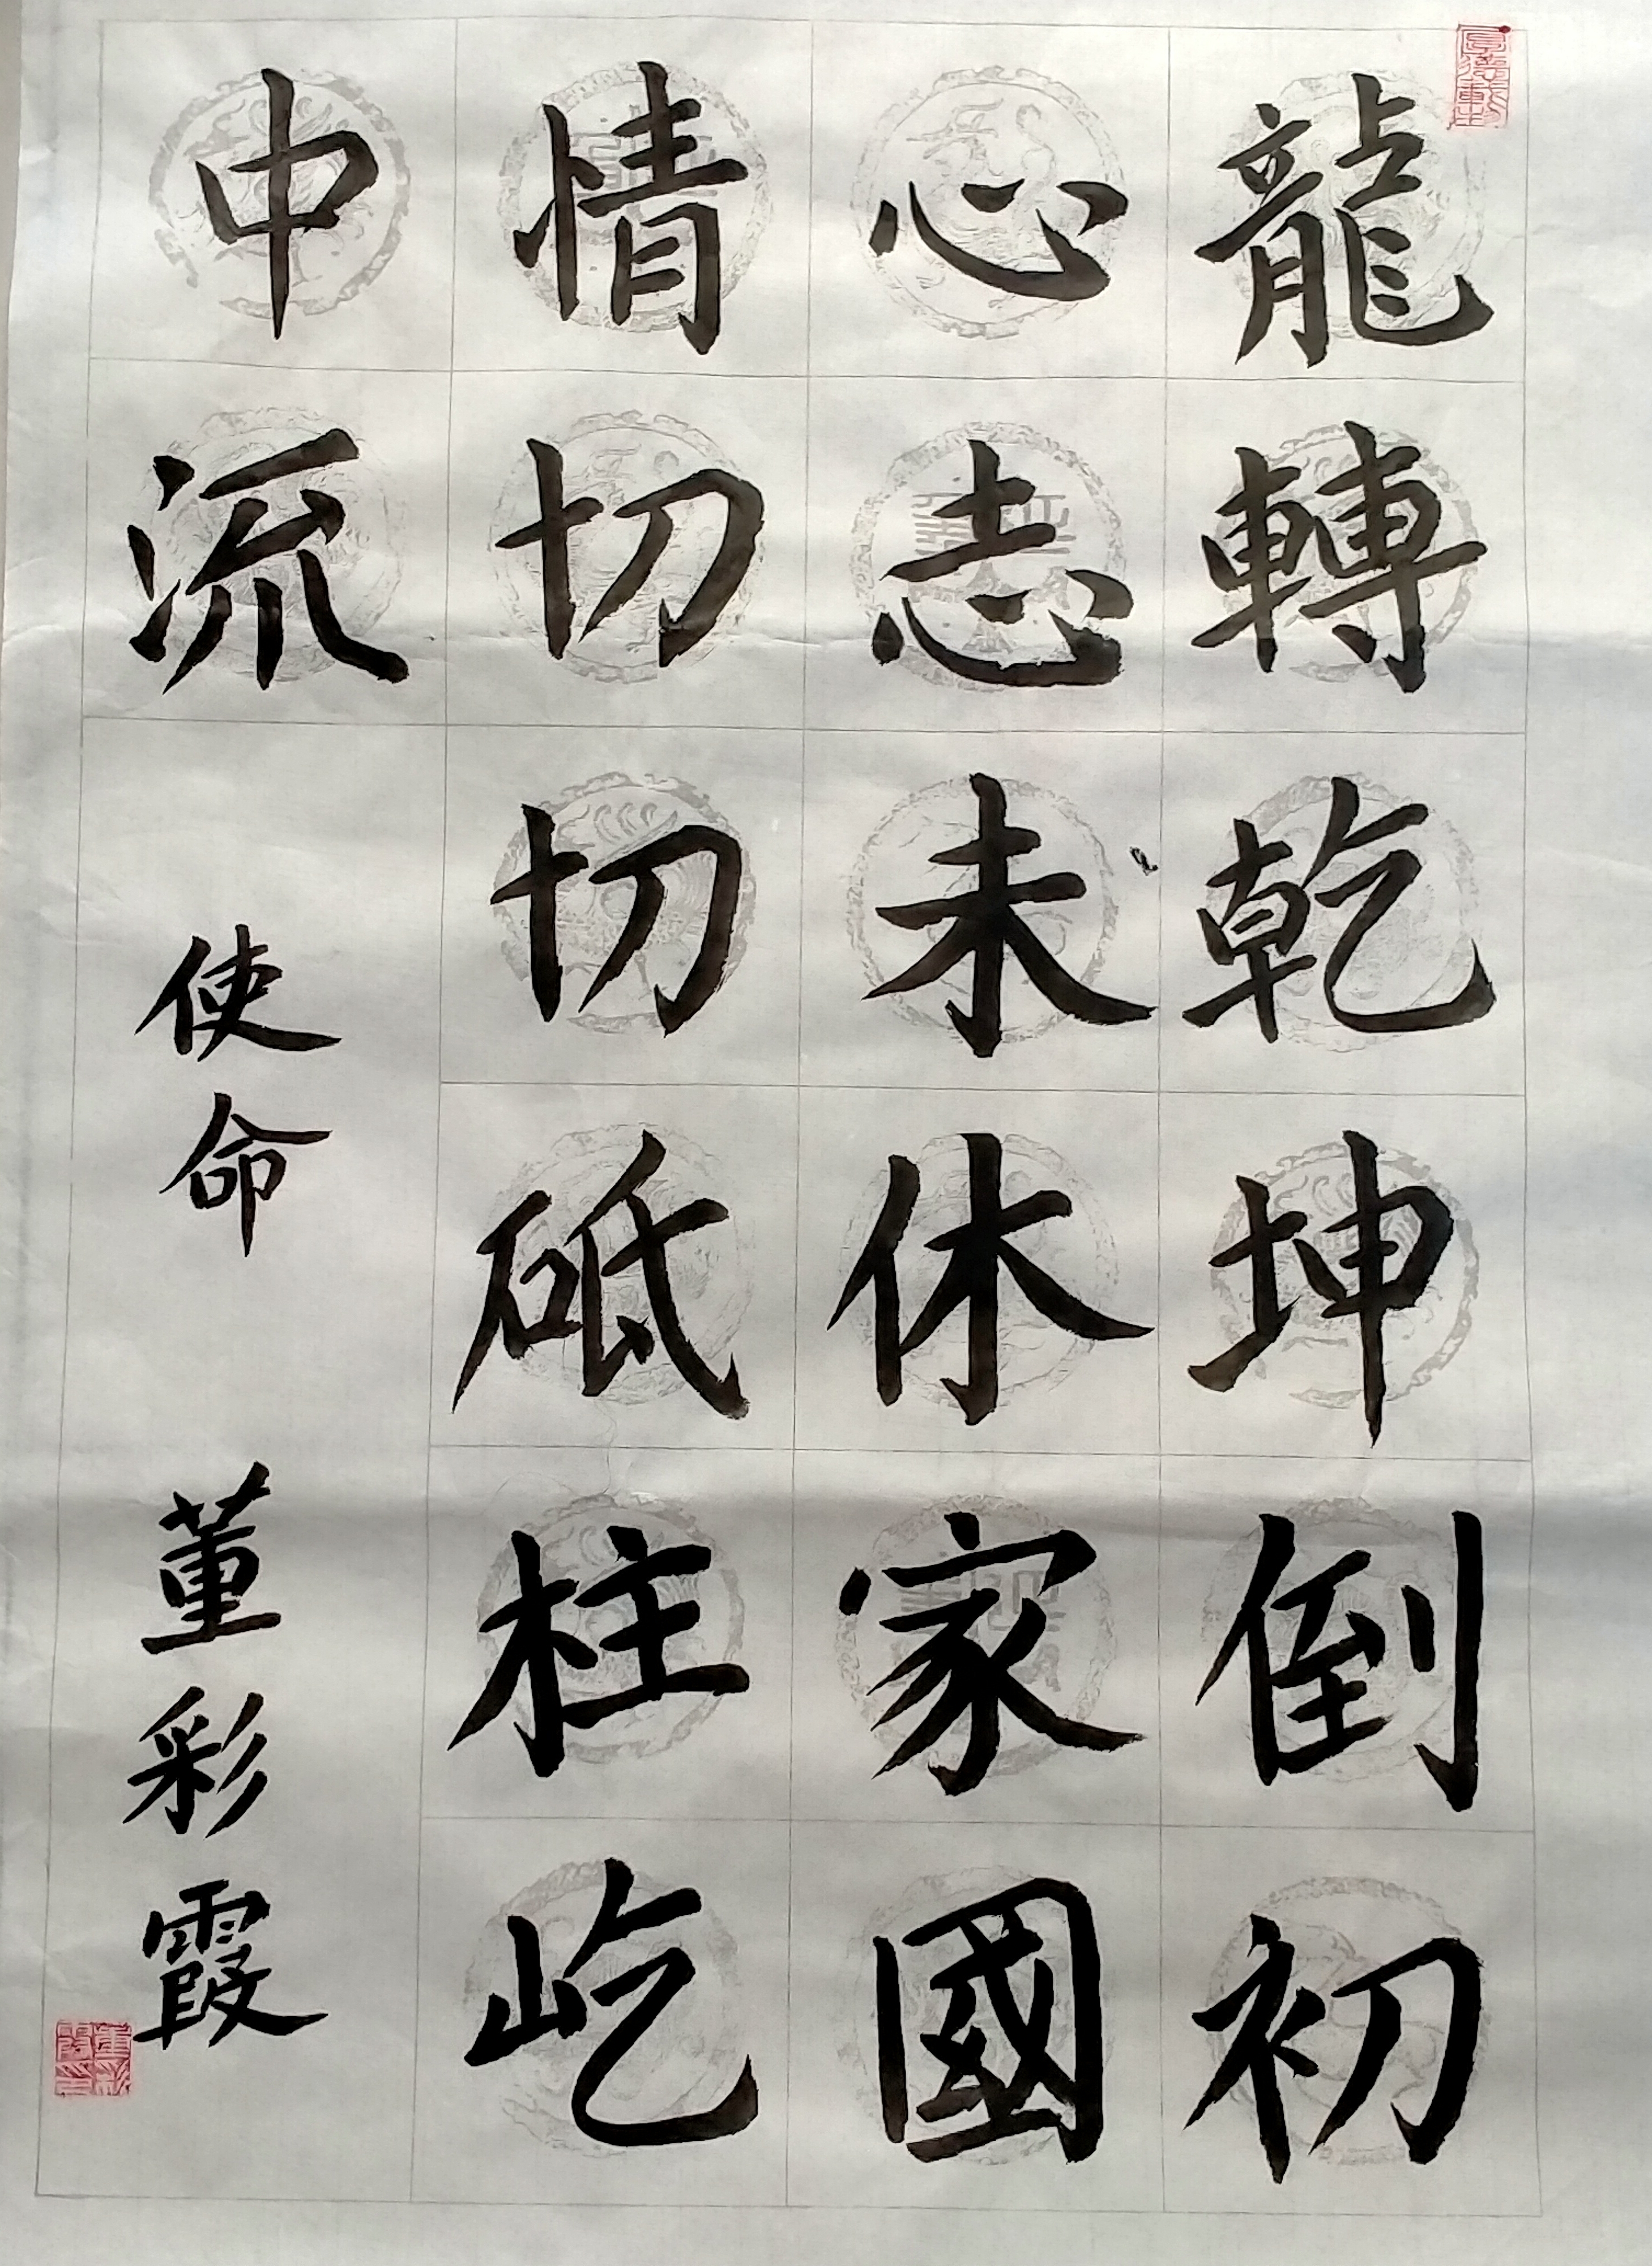 龍轉乾坤倒初
心志未休家國
情切切砥柱屹
中流
使命
董彩霞
厚德載物